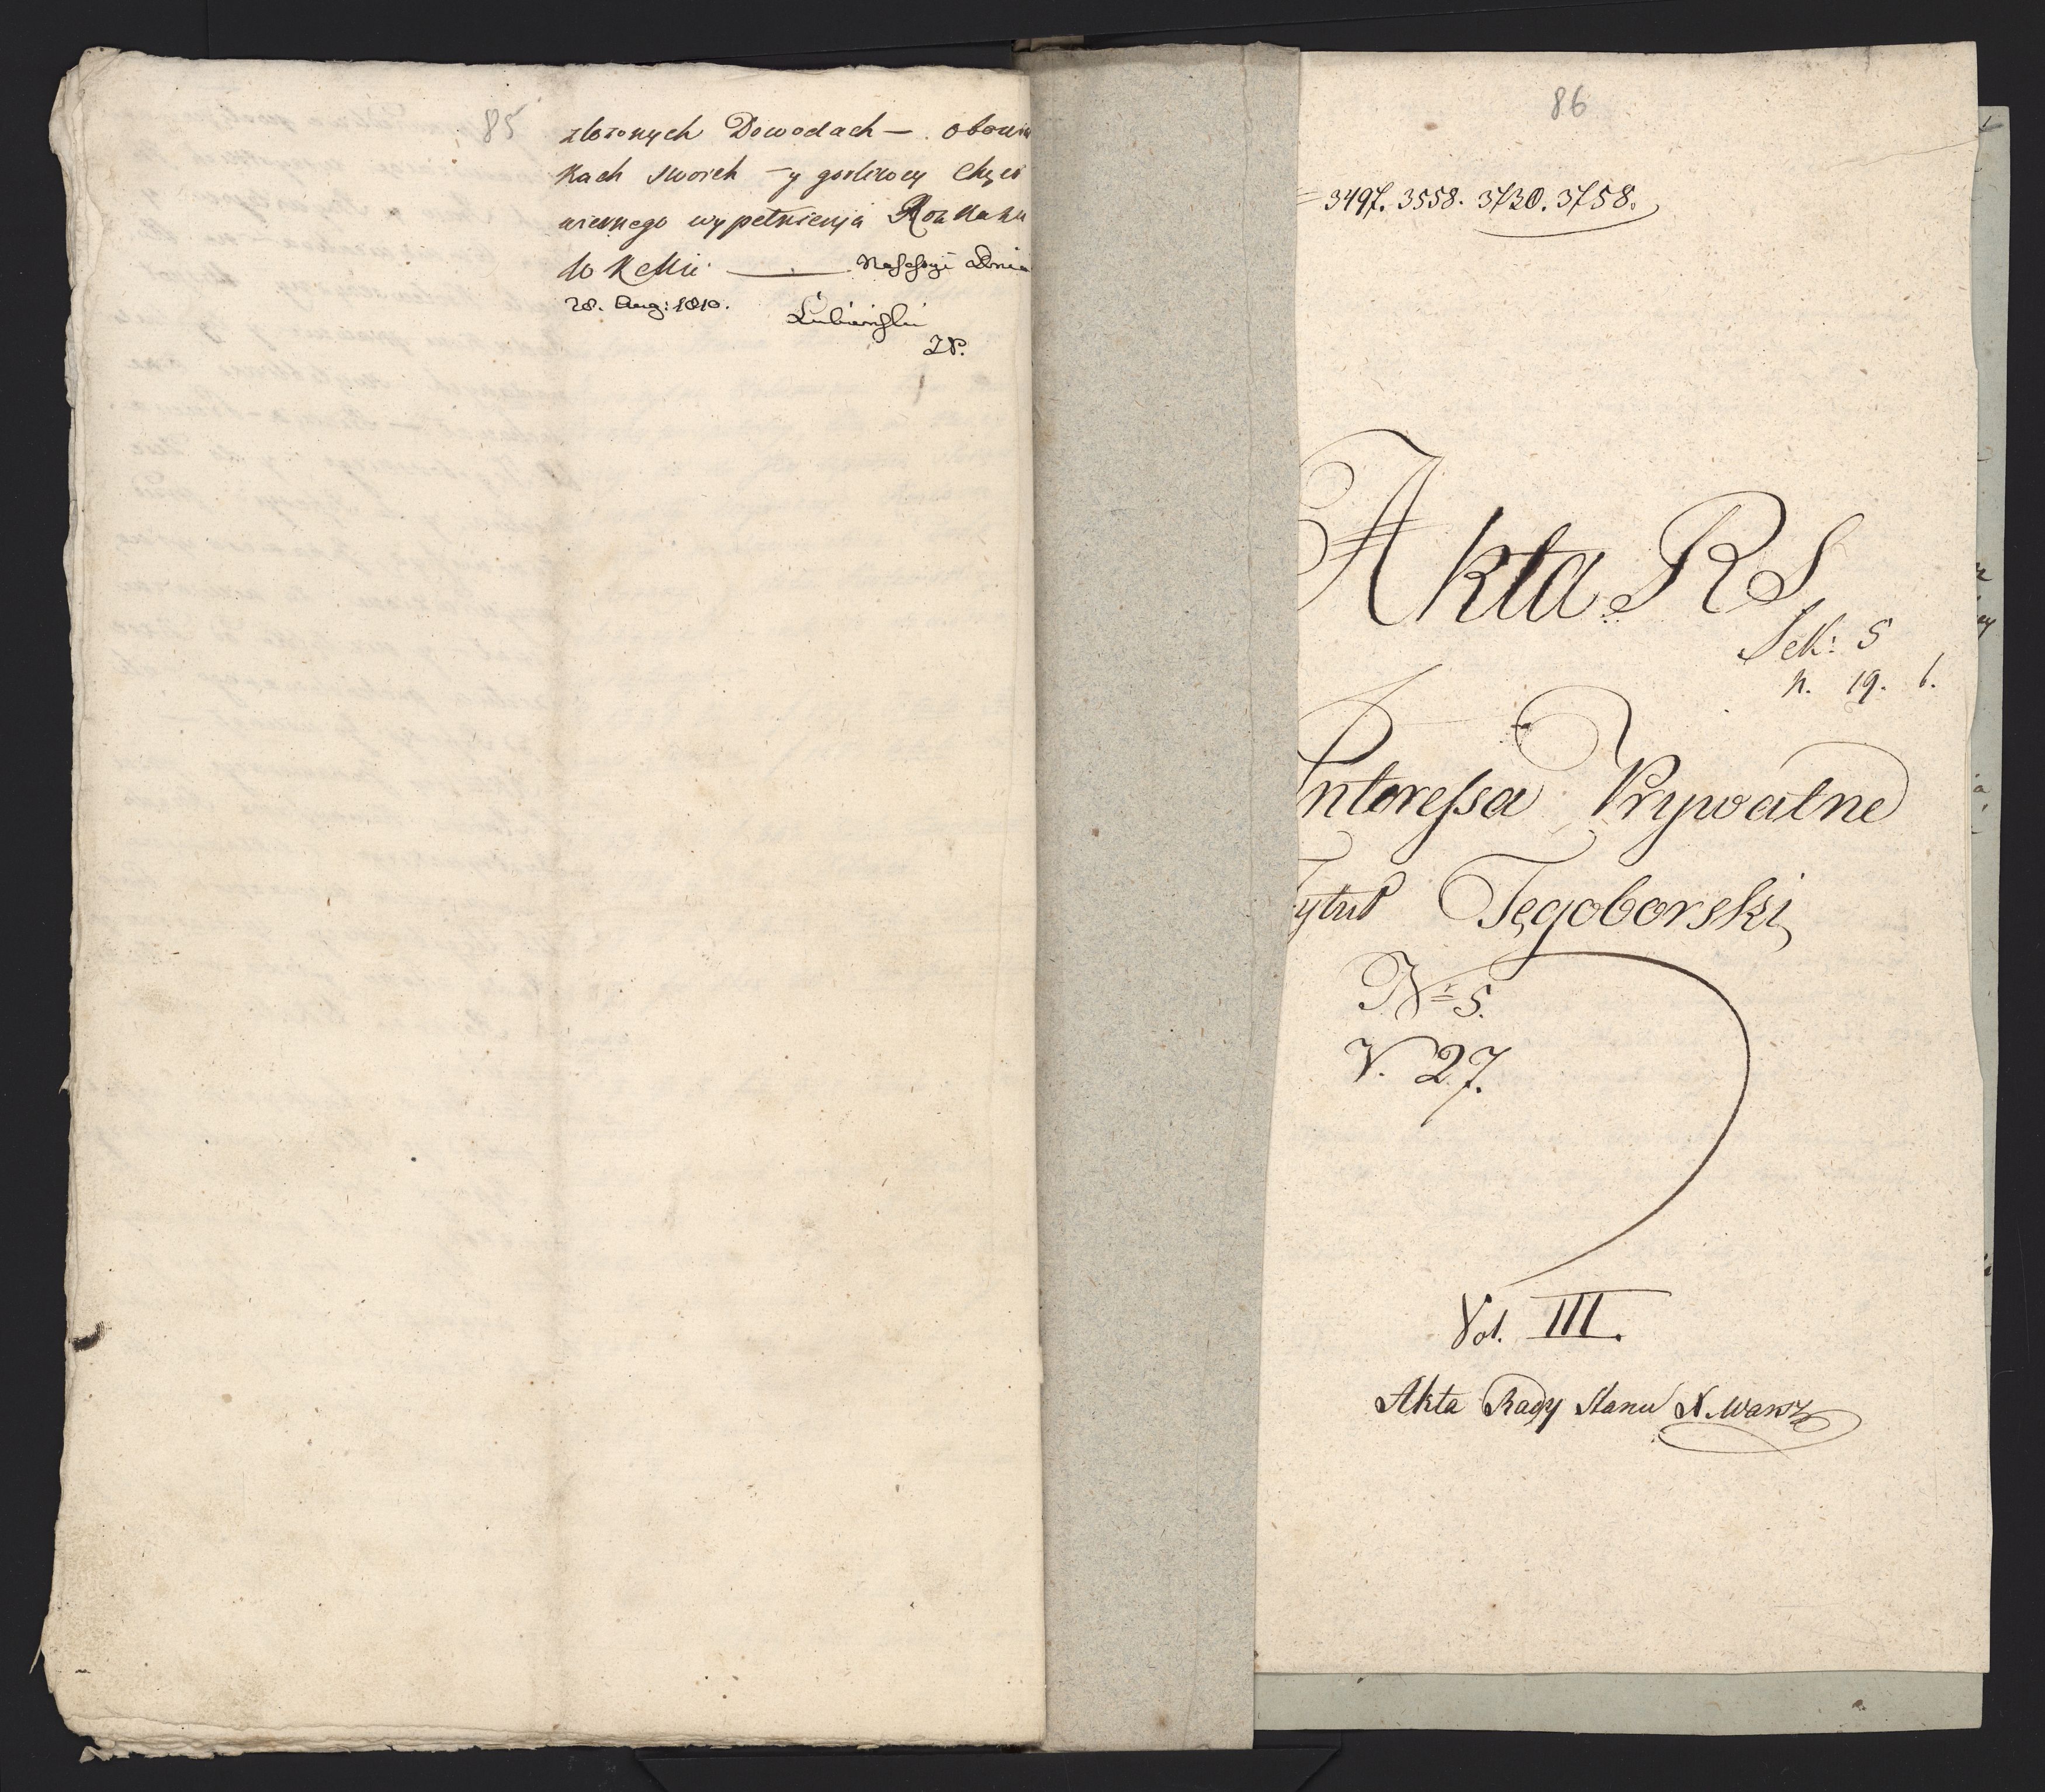 85
złożonych Dowodach —. obowią
kach swoich — y gorliwey Chęci
wiernego wypełnienia Rozkazu
do Keßiи
28. Aug: 1810.
Łubieński
86
= 3497. 3558. 3730. 3758.
Akta RS
Sek: 5
n. 19. b.
Interessa Prywatne
Tytuł Tęgoborski
No 5.
V. 27.
Vol. III.
Akta Rady Stanu X. Warsz